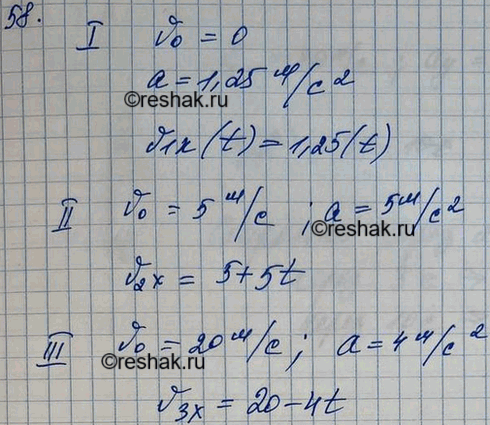 58.
I v₀ = 0
a = 1,25 м/с²
©reshak.ru
v₁x (t) = 1,25(t)
II v₀ = 5 м/с ; a = 5 м/с²
©reshak.ru
v₂x = 5 + 5t
III v₀ = 20 м/с ; a = 4 м/с²
©reshak.ru
v₃x = 20 - 4t